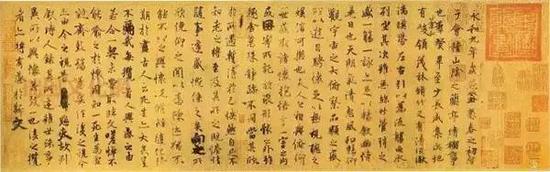 永和九年歲在癸丑暮春之初會
于會稽山陰之蘭亭脩禊事
也群賢畢至少長咸集此地
有崇山峻領茂林脩竹又有清流激
湍映帶左右引以為流觴曲水
列坐其次雖無絲竹管弦之
盛一觴一詠亦足以暢敘幽情
是日也天朗氣清惠風和暢仰
觀宇宙之大俯察品類之盛
所以遊目騁懷足以極視聽之
娛信可樂也夫人之相與俯仰
一世或取諸懷抱悟言一室之內
或因寄所託放浪形骸之外雖
趣舍萬殊靜躁不同當其欣
於所遇蹔得於己怏然自足不
知老之將至及其所之既惓情
隨事遷感慨係之矣向之所
欣俛仰之閒以為陳迹猶不
能不以之興懷況脩短隨化終
期於盡古人云死生亦大矣豈
不痛哉每攬昔人興感之由
若合一契未嘗不臨文嗟悼不
能喻之於懷固知一死生為虛
誕齊彭殤為妄作後之視今
亦由今之視昔悲夫故列
敘時人錄其所述雖世殊事
異所以興懷其致一也後之攬
者亦將有感於斯文